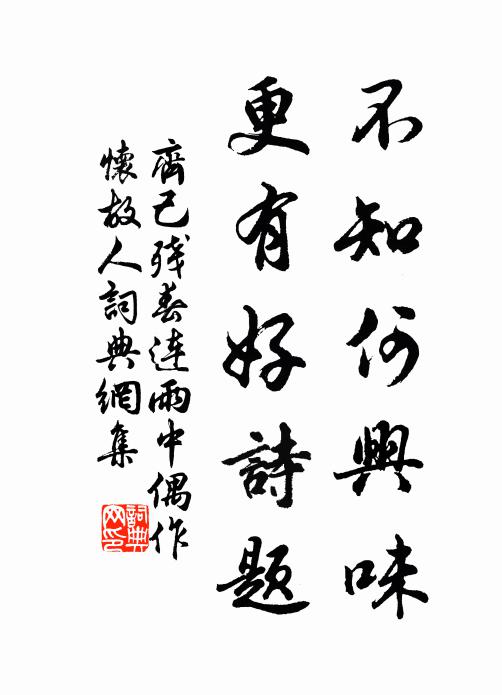 不知何興味
更有好詩題
齊己殘春連雨中偶作
懷故人詞典網集
詞典
网印